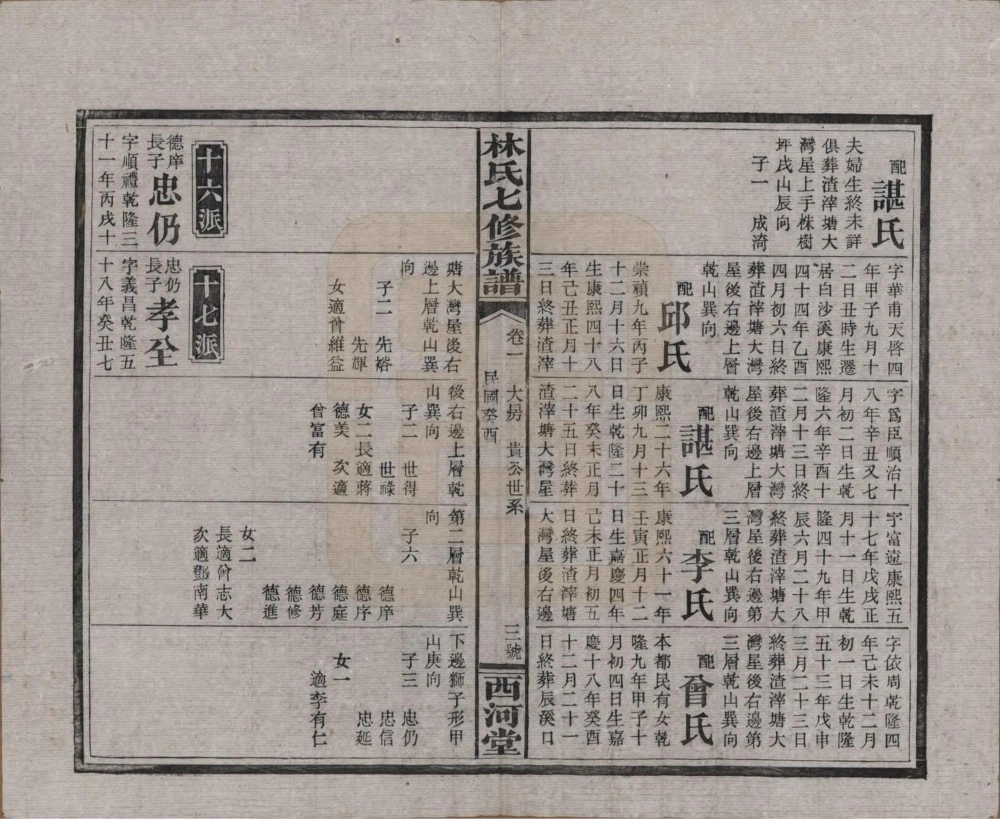 配諶氏
夫婦生終未詳
俱葬渣滓塘大
灣屋上手株樹
坪戌山辰向
子一 成漪
字華甫天啓四
年甲子九月十
二日丑時生遷
居白沙溪康熙
四十四年乙酉
四月初六日終
葬渣滓塘大灣
屋後右邊上層
乾山巽向
配邱氏
崇禎九年丙子
十二月十六日
生康熙四十八
年己丑正月十
三日終葬渣滓
字爲臣順治十
八年辛丑又七
月初二日生乾
隆六年辛酉十
二月十三日終
葬渣滓塘大灣
屋後右邊上層
乾山巽向
配諶氏
康熙二十六年
丁卯九月十三
日生乾隆二十
八年癸未正月
二十五日終葬
渣滓塘大灣屋
字富遠康熙五
十七年戊戌正
月十一日生乾
隆四十九年甲
辰六月二十八
終葬渣滓塘大
灣屋後右邊第
三層乾山巽向
配李氏
康熙六十一年
壬寅正月十二
日生嘉慶四年
己未正月初五
日終葬渣滓塘
大灣屋後右邊
字依周乾隆四
年己未十二月
初一日生乾隆
五十三年戊申
三月二十三日
終葬渣滓塘大
灣屋後右邊第
三層乾山巽向
配曾氏
本都民有女乾
隆九年甲子十
月初四日生嘉
慶十八年癸酉
十二月二十一
日終葬辰溪口
林氏七修族譜
卷一
大房 貴公世系
民國癸酉
三號
西河堂
塘大灣屋後右
邊上層乾山巽
向
子二 先裕
先輝
女適曾維益
後右邊上層乾
山巽向
子二 世得
世祿
女二長適蔣
德美 次適
曾富有
第二層乾山巽
向
子六 德庠
德序
德庭
德芳
德修
德進
女二
長適曾志大
次適鄧南華
下邊獅子形甲
山庚向
子三 忠仍
忠信
忠延
女一
適李有仁
十六派
德庠長子忠仍
字順禮乾隆三
十一年丙戌十
十七派
忠仍長子孝全
字義昌乾隆五
十八年癸丑七